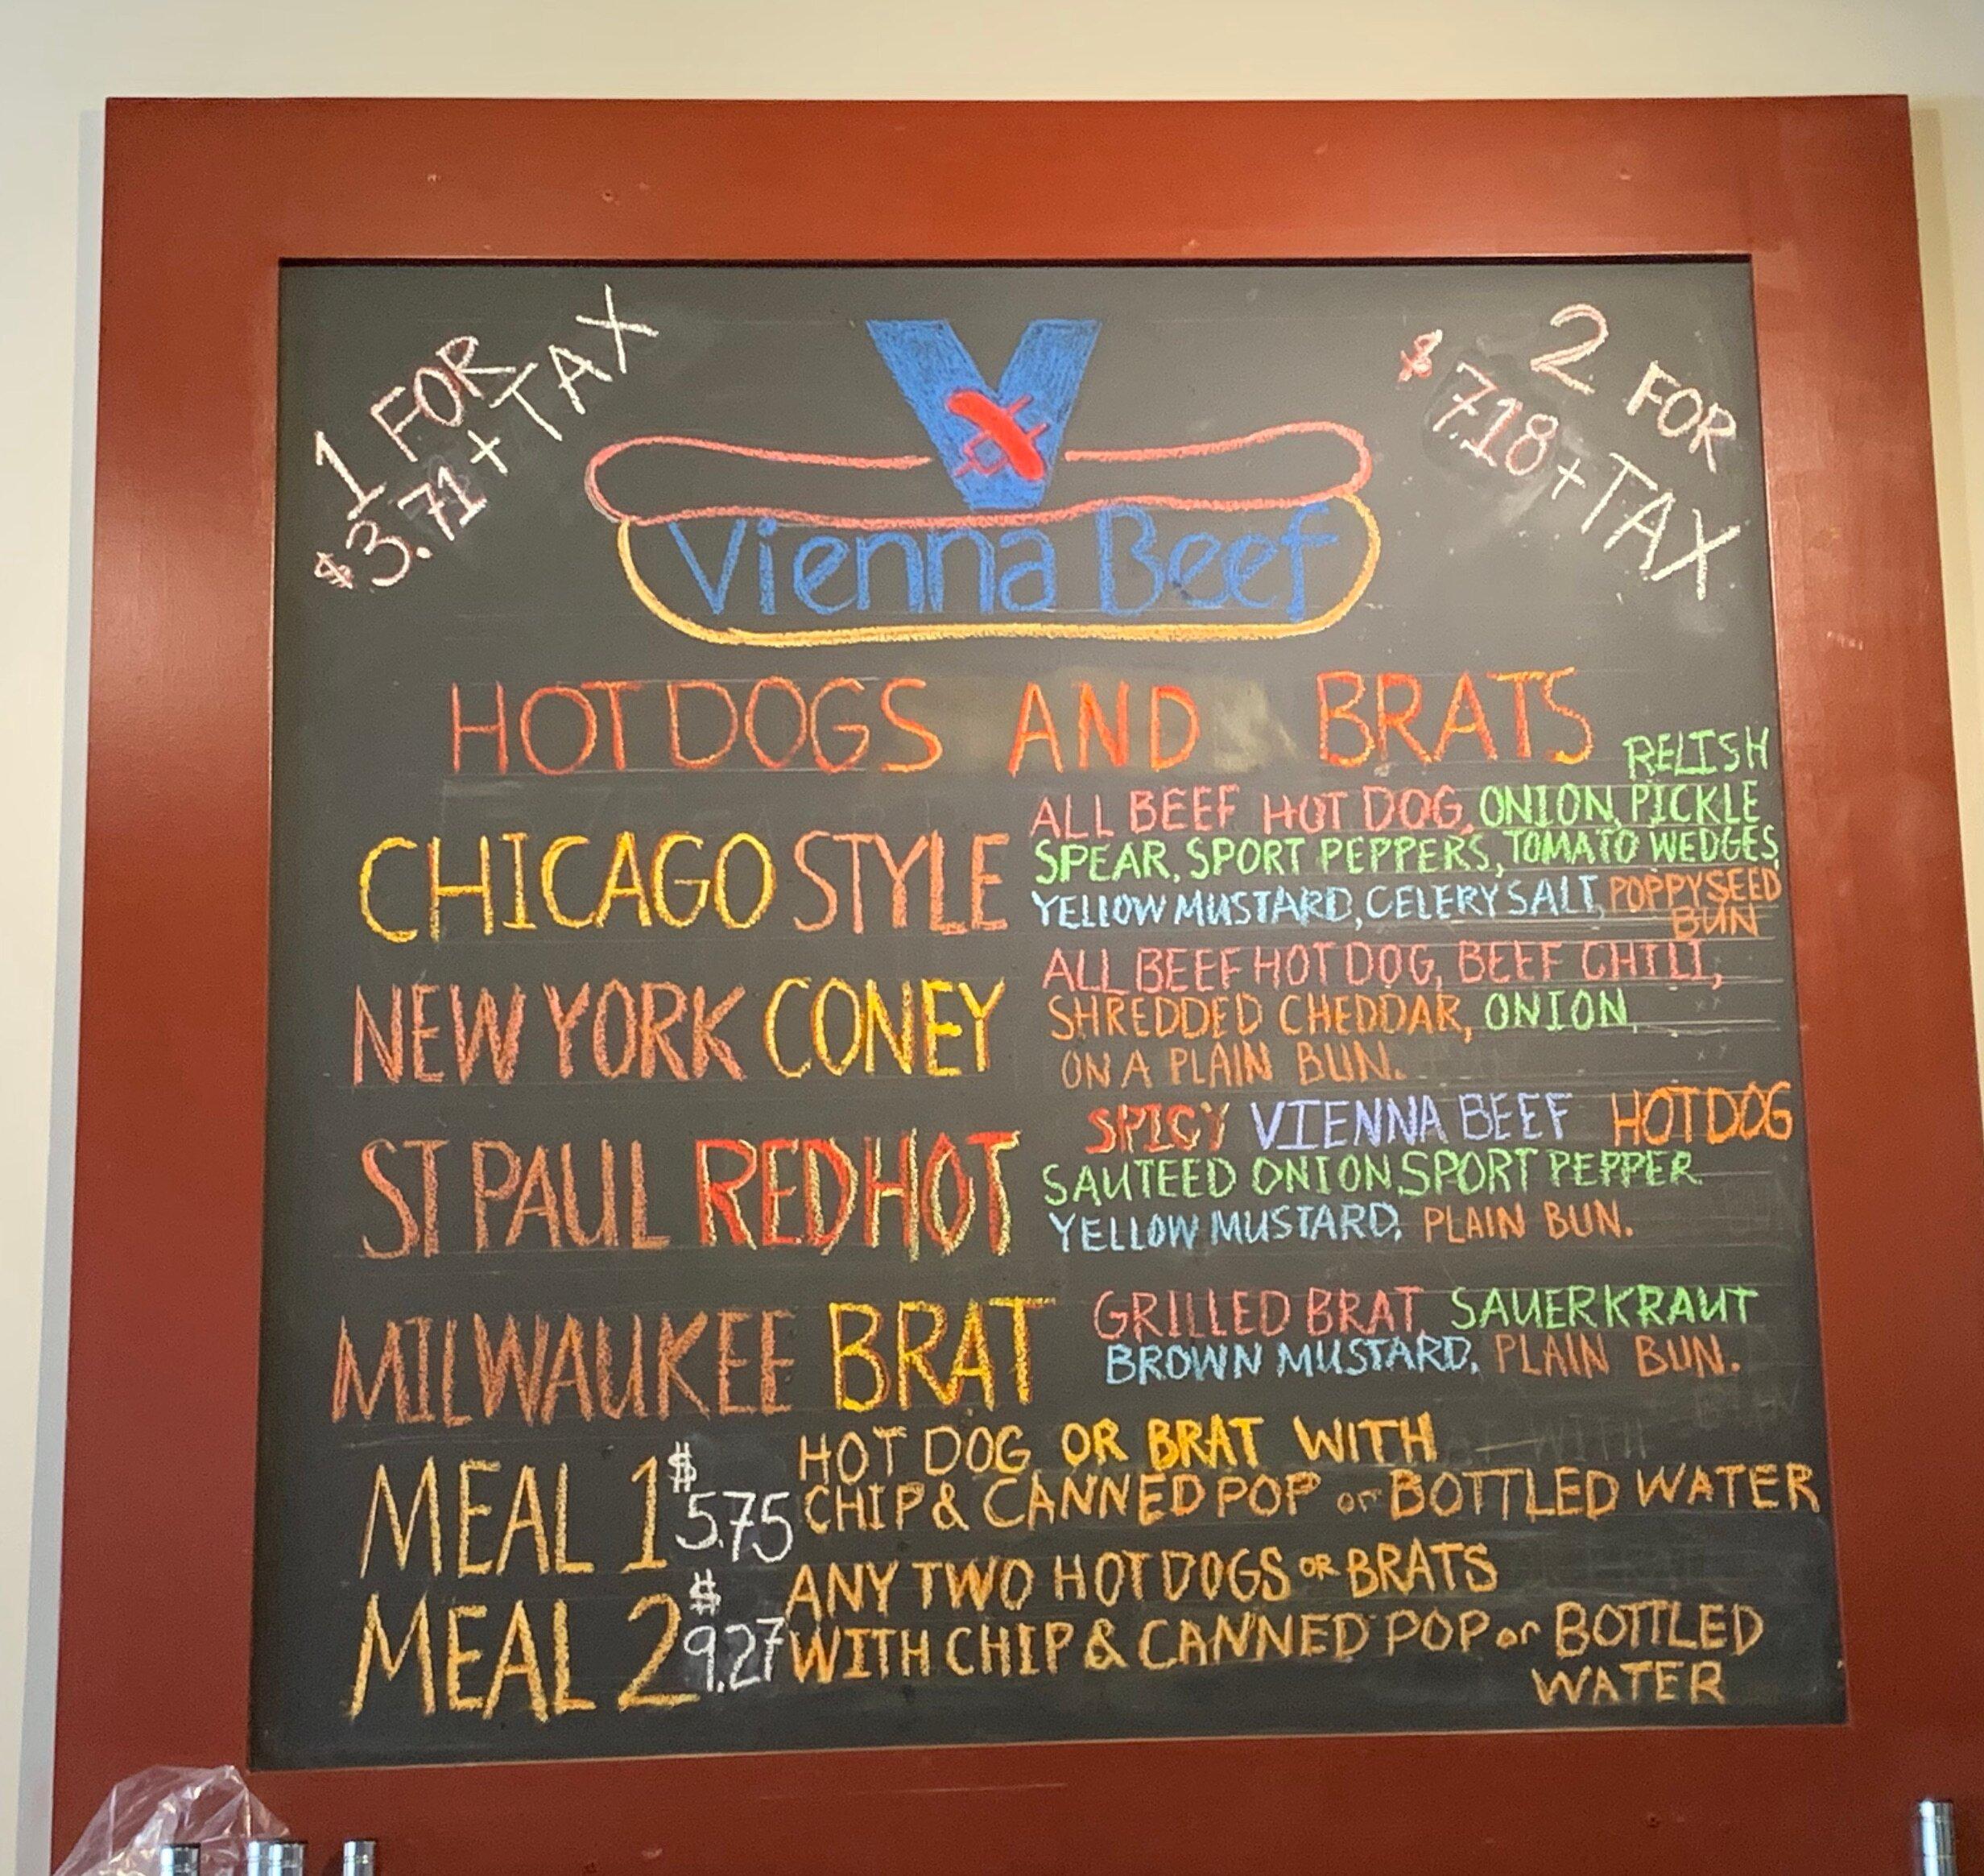 1 FOR
$3.71 + TAX
2 FOR
$7.18 + TAX
V
Vienna Beef
HOT DOGS AND BRATS
CHICAGO STYLE
RELISH
ALL BEEF HOT DOG, ONION, PICKLE
SPEAR, SPORT PEPPERS, TOMATO WEDGES,
YELLOW MUSTARD, CELERY SALT, POPPYSEED
BUN
NEW YORK CONEY
ALL BEEF HOT DOG, BEEF CHILI,
SHREDDED CHEDDAR, ONION,
ON A PLAIN BUN.
ST PAUL REDHOT
SPICY VIENNA BEEF HOTDOG
SAUTEED ONION, SPORT PEPPER
YELLOW MUSTARD, PLAIN BUN.
MILWAUKEE BRAT
GRILLED BRAT, SAUERKRAUT
BROWN MUSTARD, PLAIN BUN.
MEAL 1 $5.75
HOT DOG OR BRAT WITH
CHIP & CANNED POP or BOTTLED WATER
MEAL 2 $9.27
ANY TWO HOT DOGS OR BRATS
WITH CHIP & CANNED POP or BOTTLED
WATER